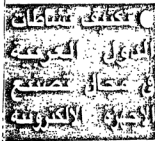 ● تكثيف نشاطات
الدول العربية
في مجال تصنيع
الأجهزة الالكترونية